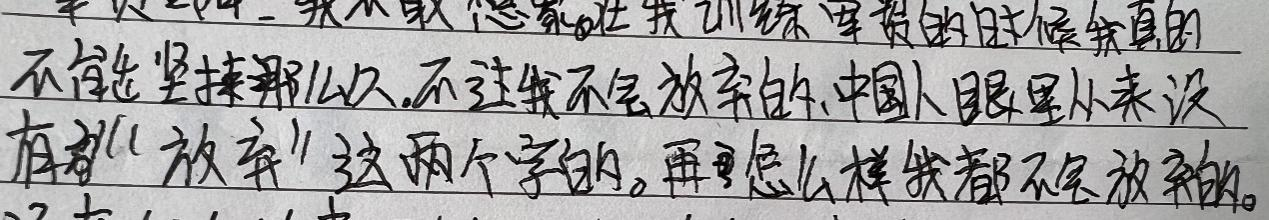 我不敢想象。在我训练军姿的时候我真的
不能坚持那么久。不过我不会放弃的、中国人眼里从来没
有着“放弃”这两个字的。再怎么样我都不会放弃的。